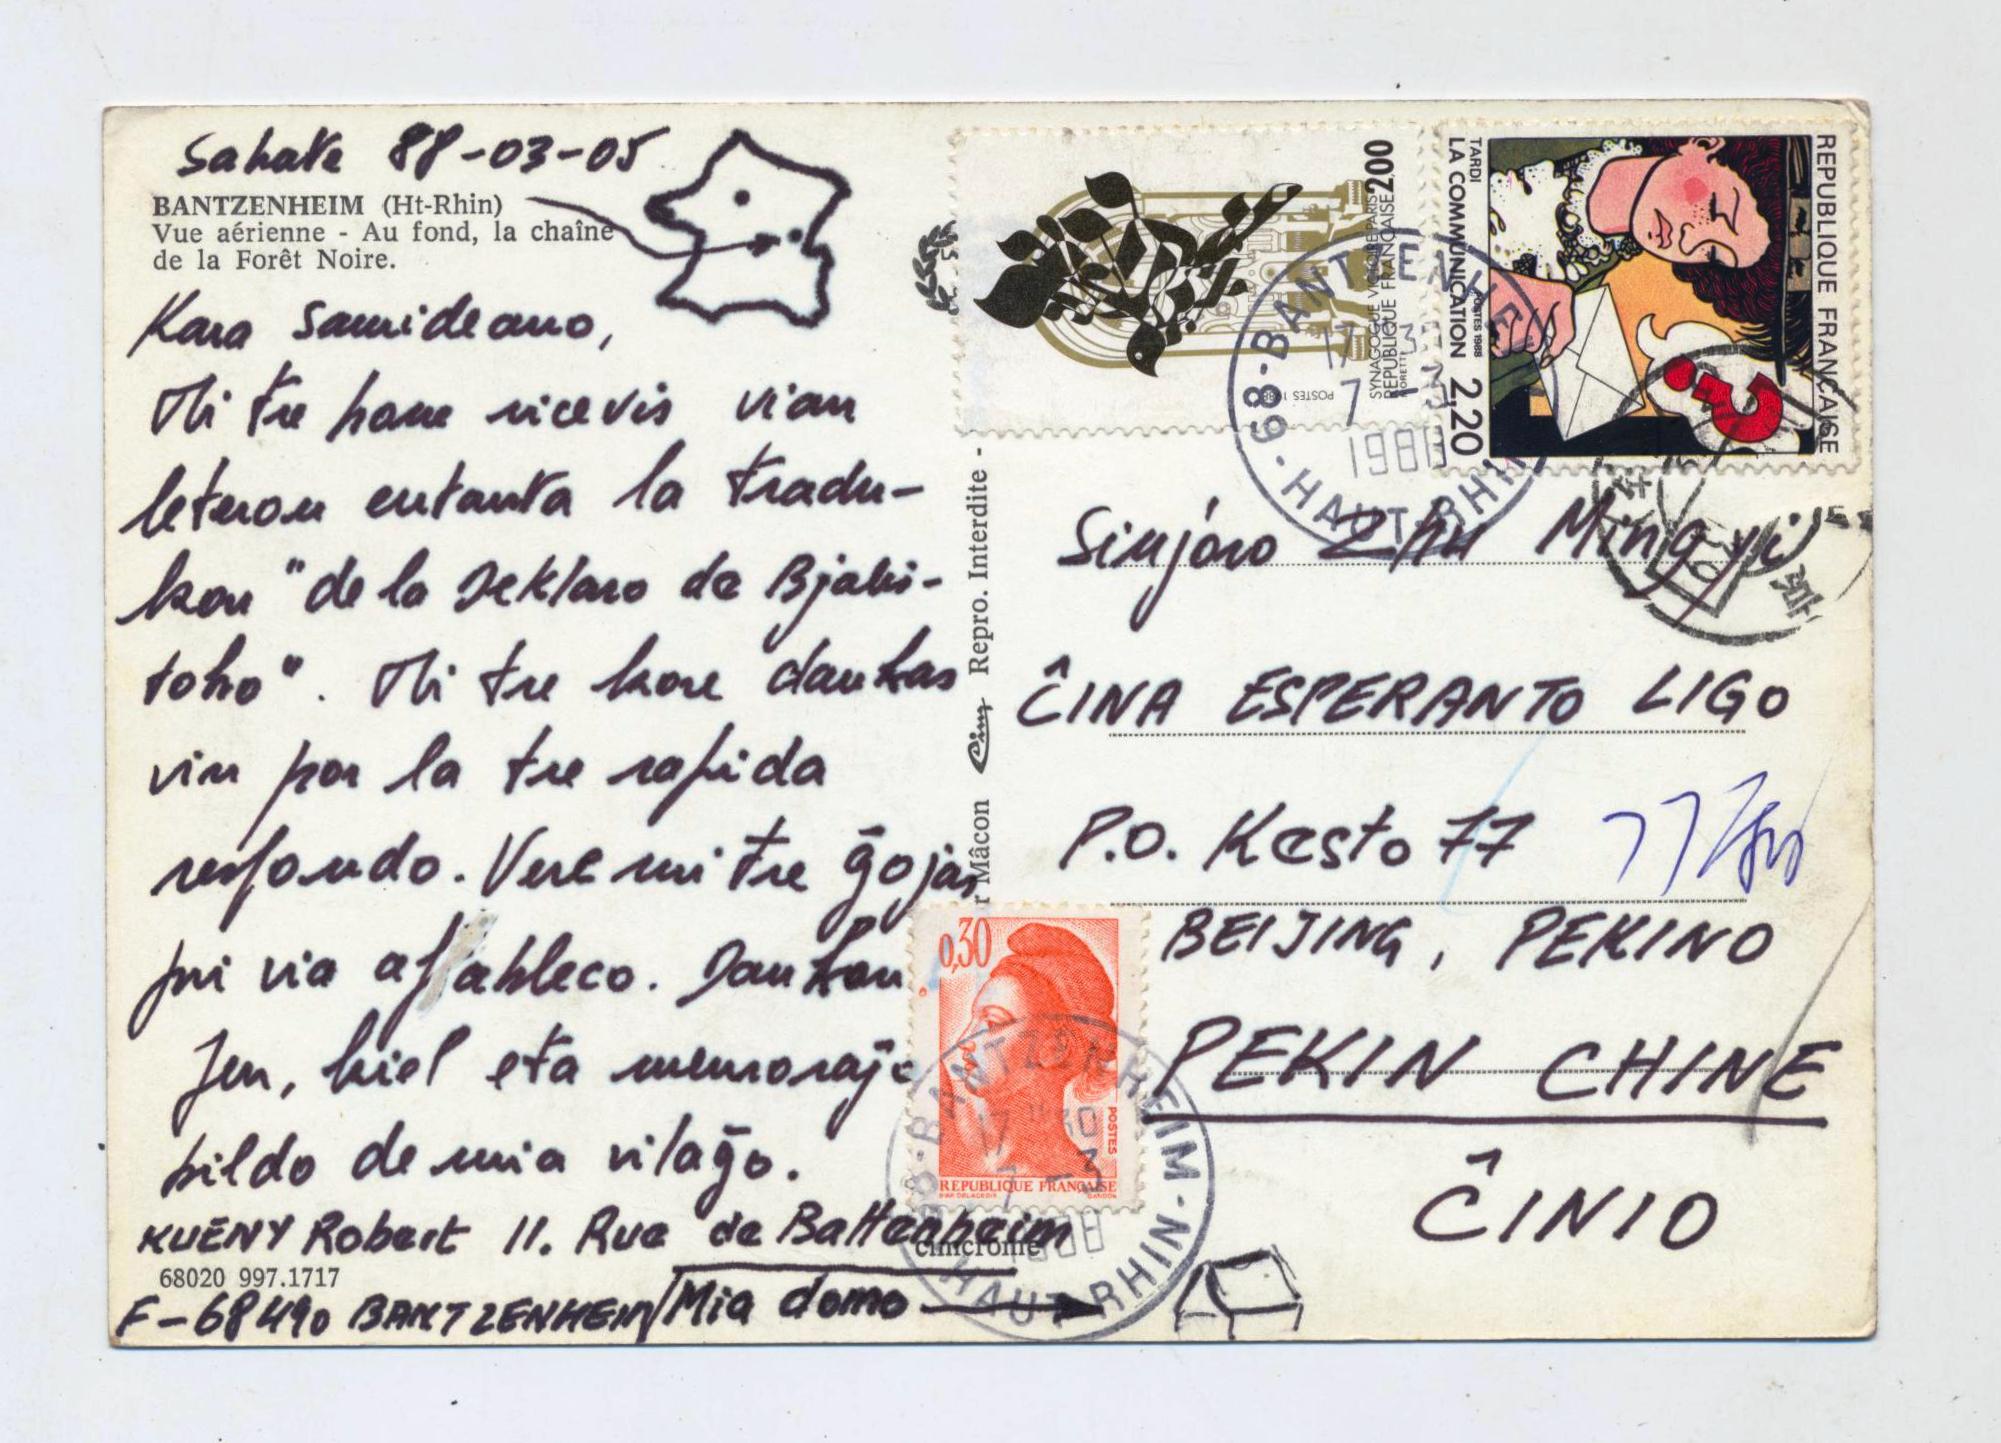 Sabate 88-03-05
BANTZENHEIM (Ht-Rhin)
Vue aérienne - Au fond, la chaîne
de la Forêt Noire.
Kara Samideano,
Mi tre bone ricevis vian
leteron entanta la tradu-
kon "de la Deklaro de Bjalis-
toko". Mi tre kore dankas
vin por la tre rapida
respondo. Vere mi tre ĝojas
pri via afableco. Dankon
Jen, kiel eta memoraĵo
bildo de mia vilaĝo.
KUENY Robert 11. Rue de Battenheim
68020 997.1717
F-68490 BANTZENHEIM
Mia domo
cimcrome
Mâcon
Cim
Repro. Interdite -
SYNAGOGUE VICTOIRE PARIS
REPUBLIQUE FRANÇAISE 2,00
POSTES
REPUBLIQUE FRANÇAISE
TARDI
LA COMMUNICATION 2,20
POSTES 1988
68-BANTZENHEIM
17 3
7 -3
1988
HAUT-RHIN
Sinjoro Zhu Mingyi
ĈINA ESPERANTO LIGO
P.O. Kesto 77
BEIJING, PEKINO
PEKIN CHINE
ĈINIO
0,30
POSTES
REPUBLIQUE FRANÇAISE
D'AP. DELACROIX GANDON
68-BANTZENHEIM
17 30
7 -3
1988
HAUT-RHIN